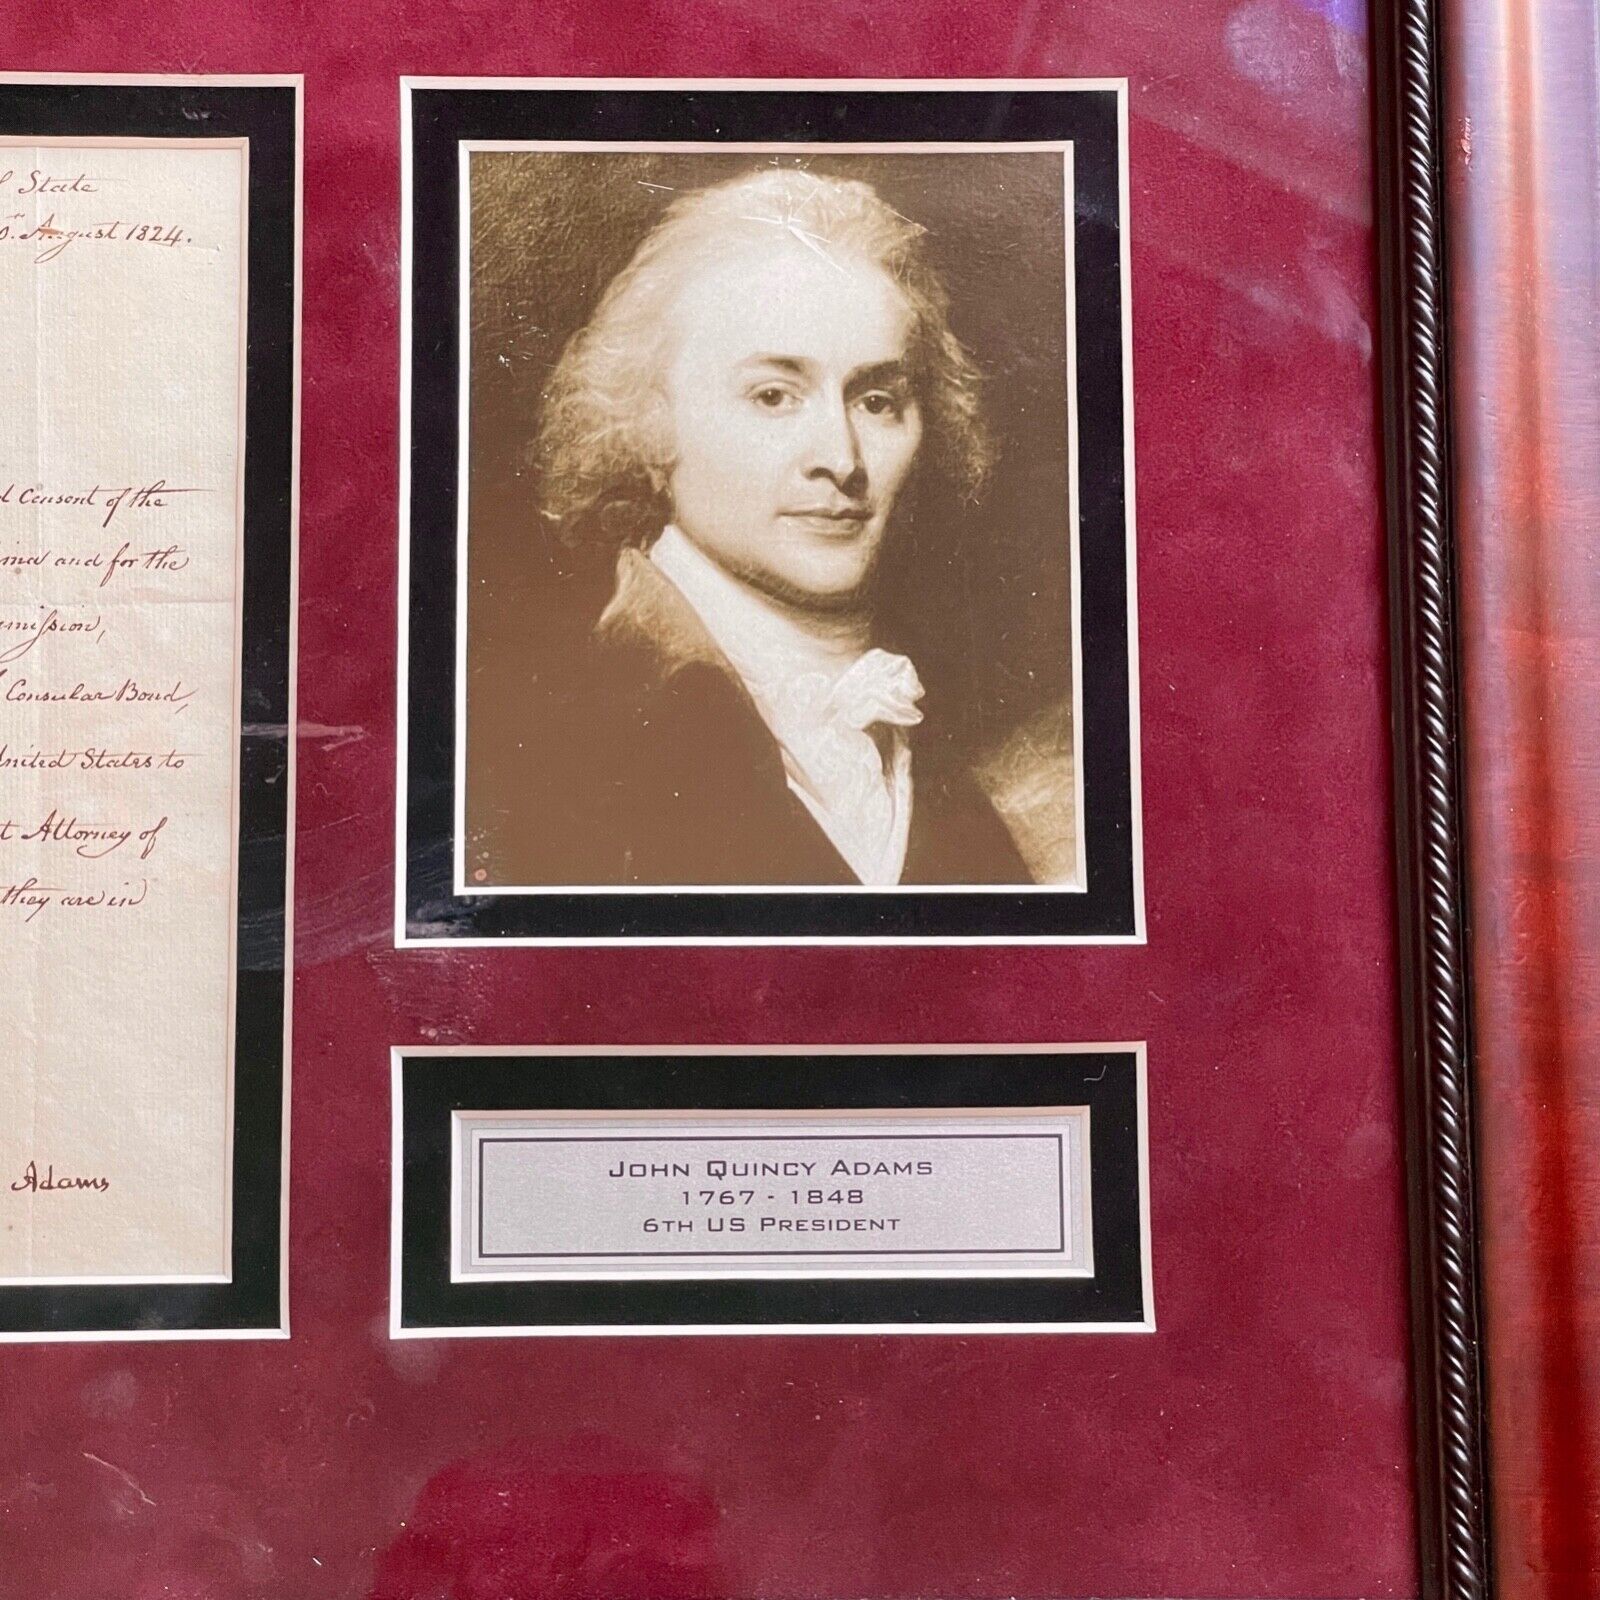 State
August 1824.
Consent of the
and for the
Consular Bond,
United States to
Attorney of
they are in
Adams
JOHN QUINCY ADAMS
1767 - 1848
6TH US PRESIDENT